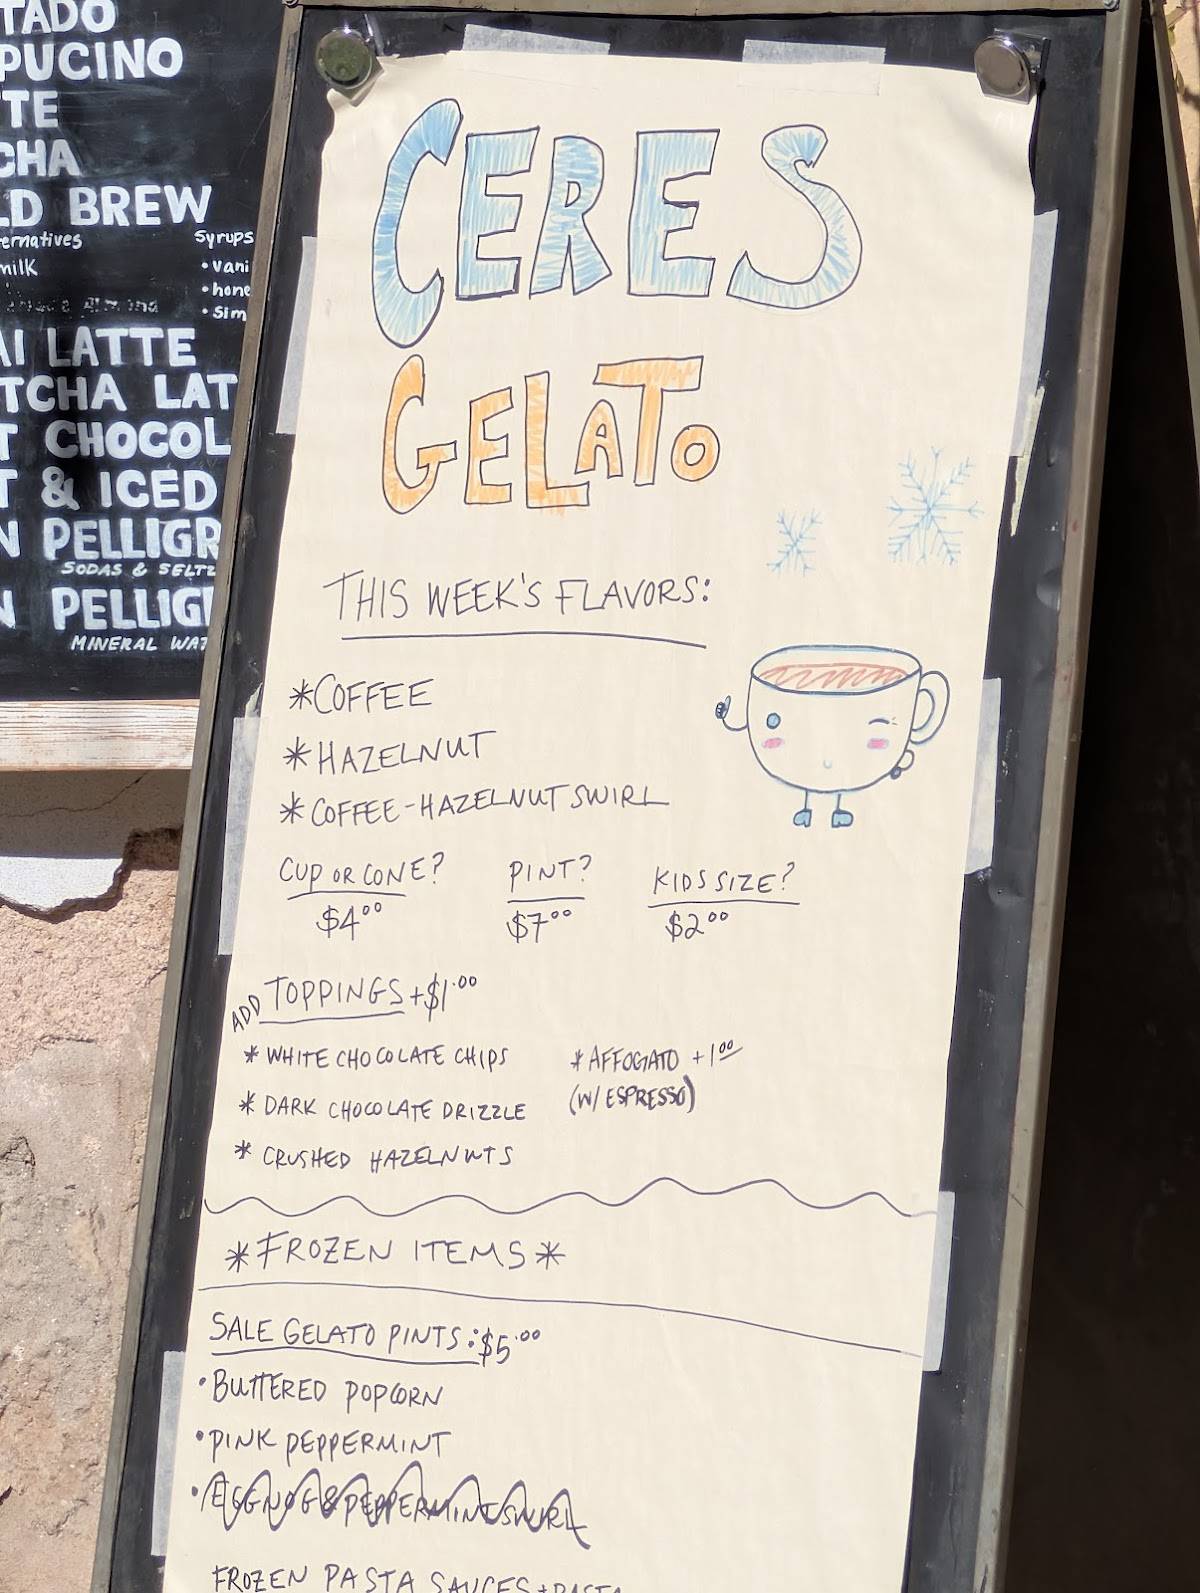 TADO
PUCINO
TE
CHA
LD BREW
ernatives
milk
Syrups
• vani
• hone
• Sim
AI LATTE
TCHA LAT
T CHOCOL
T & ICED
N PELLIGR
SODAS & SELTZ
N PELLIGI
MINERAL WAT
CERES
GELATO
THIS WEEK'S FLAVORS:
*COFFEE
*HAZELNUT
*COFFEE-HAZELNUT SWIRL
CUP OR CONE? PINT? KIDS SIZE?
$4.00 $7.00 $2.00
ADD TOPPINGS +$1.00
* WHITE CHOCOLATE CHIPS
* DARK CHOCOLATE DRIZZLE
* CRUSHED HAZELNUTS
* AFFOGATO +1.00
(W/ ESPRESSO)
*FROZEN ITEMS*
SALE GELATO PINTS: $5.00
• BUTTERED POPCORN
• PINK PEPPERMINT
• EGGNOG & PEPPERMINT SWIRL
FROZEN PASTA SAUCES + PASTA